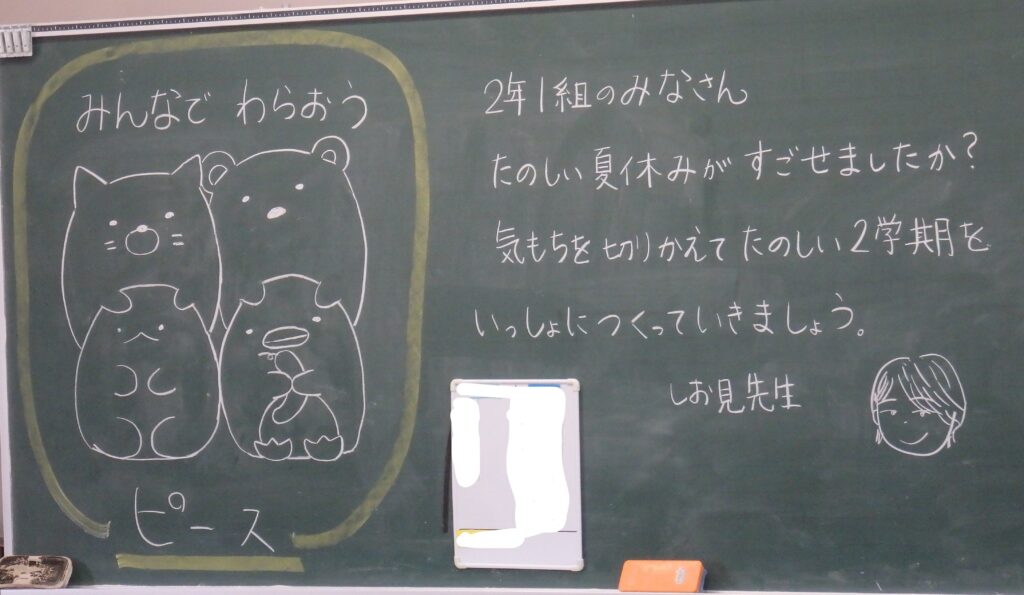 みんなで わらおう
ピース
2年1組のみなさん
たのしい夏休みが すごせましたか?
気もちを切りかえてたのしい2学期を
いっしょにつくっていきましょう。
しお見先生